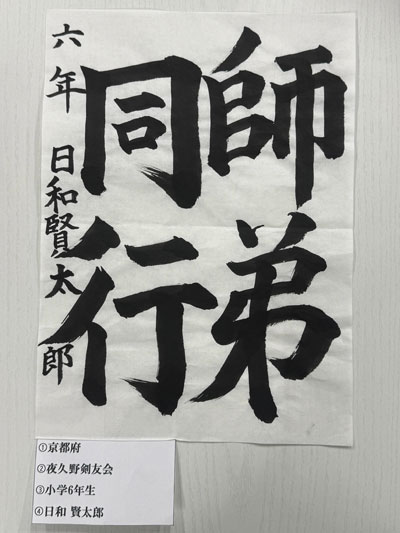 師弟
同行
六年 日和賢太郎
①京都府
②夜久野剣友会
③小学6年生
④日和 賢太郎